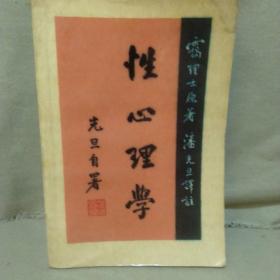 靄理士原著 潘光旦譯註
性心理学
光旦自署